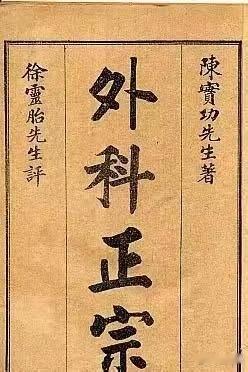 陳實功先生著
外科正宗
徐靈胎先生評